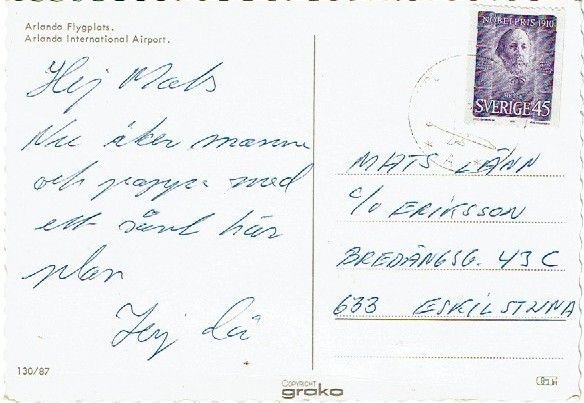 Arlanda Flygplats.
Arlanda International Airport.
NOBELPRIS 1910
SVERIGE 45
Hej Mats
Nu åker mamma
och pappa med
ett sånt här
plan
Hej då
MATS LÄNN
c/o ERIKSSON
BREDÄNGSG. 43 C
633 ESKILSTUNA
130/87
COPYRIGHT
grako